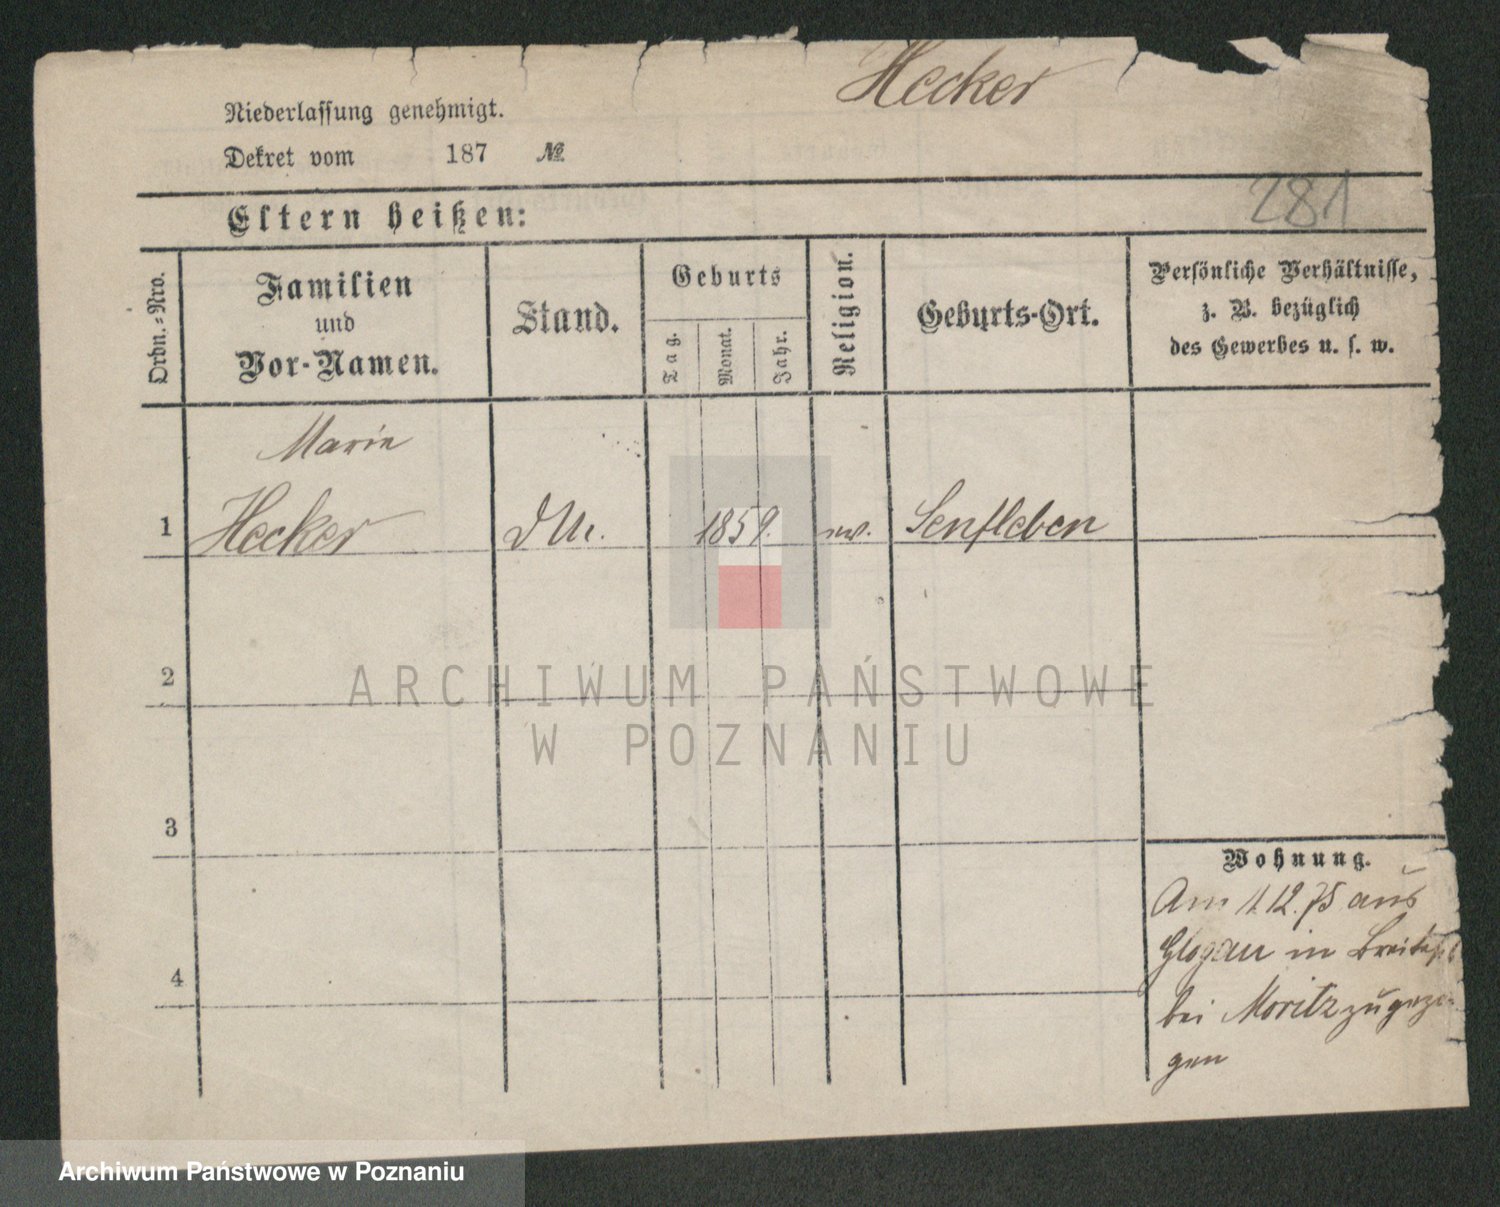 Hecker
Niederlassung genehmigt.
Dekret vom 187 №
281
Eltern heißen:
Ordn.-Nro.
Familien
und
Vor-Namen.
Stand.
Geburts
Tag.
Monat.
Jahr.
Religion.
Geburts-Ort.
Persönliche Verhältnisse,
z. B. bezüglich
des Gewerbes u. s. w.
Marie
1 Hecker 1859. Senftleben
2
3
4
Wohnung.
Am 1.12.75 aus
Glogau in
bei Moritz zugezo-
gen
ARCHIWUM PAŃSTWOWE
W POZNANIU
Archiwum Państwowe w Poznaniu